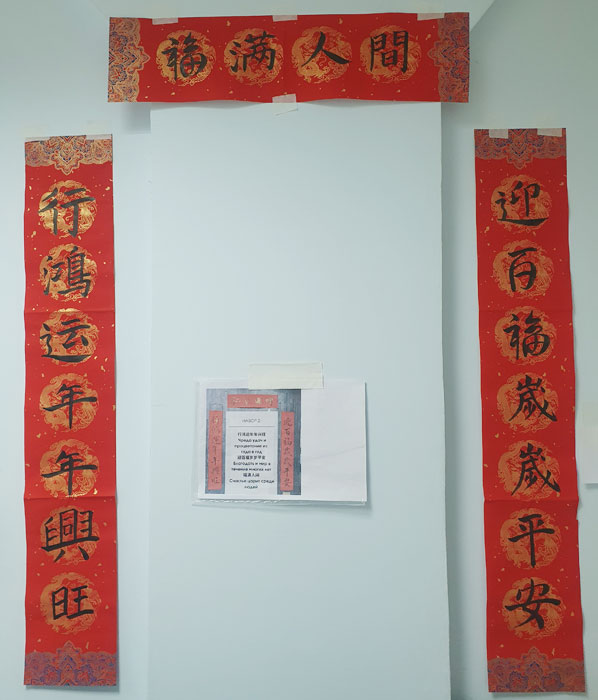 福满人間
行鴻运年年興旺
迎百福歲歲平安
行鸿运年年兴旺
Чреда удач и
процветание из
года в год
迎百福岁岁平安
Благодать и мир в
течение многих лет
福满人间
Счастье царит среди
людей